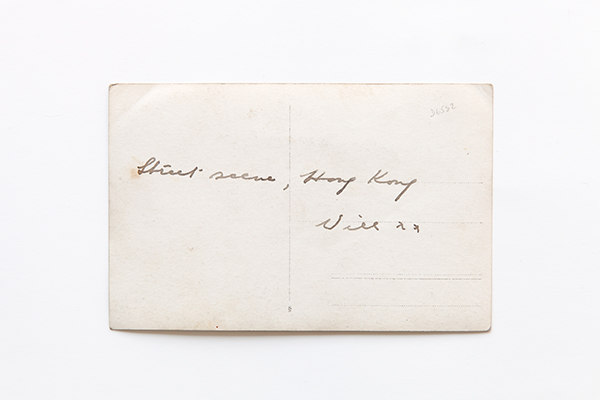 36532
Street scene, Hong Kong
Will xx